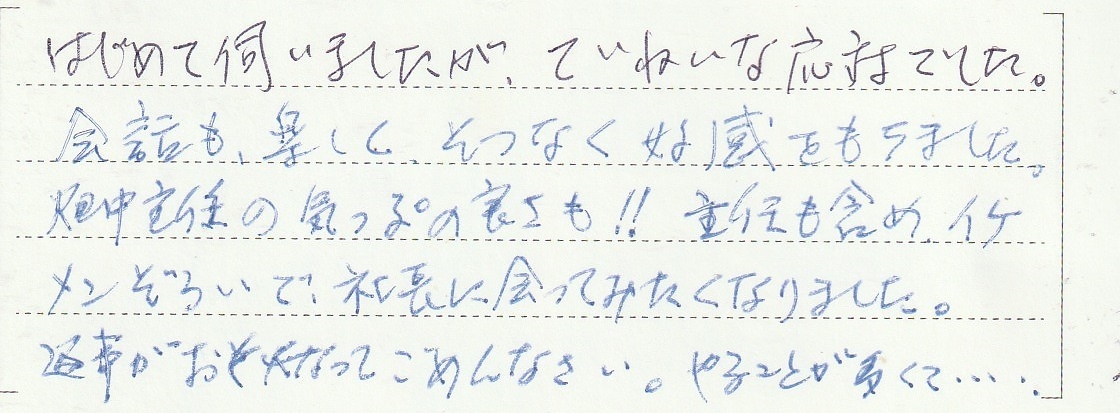 はじめて伺いましたが、ていねいな応対でした。
会話も、楽しく、そつなく好感をもちました。
畑中主任の気っぷの良さも!! 主任も含め、イケ
メンぞろいで、社長に会ってみたくなりました。
返事がおそくなってごめんなさい。やることが多くて……